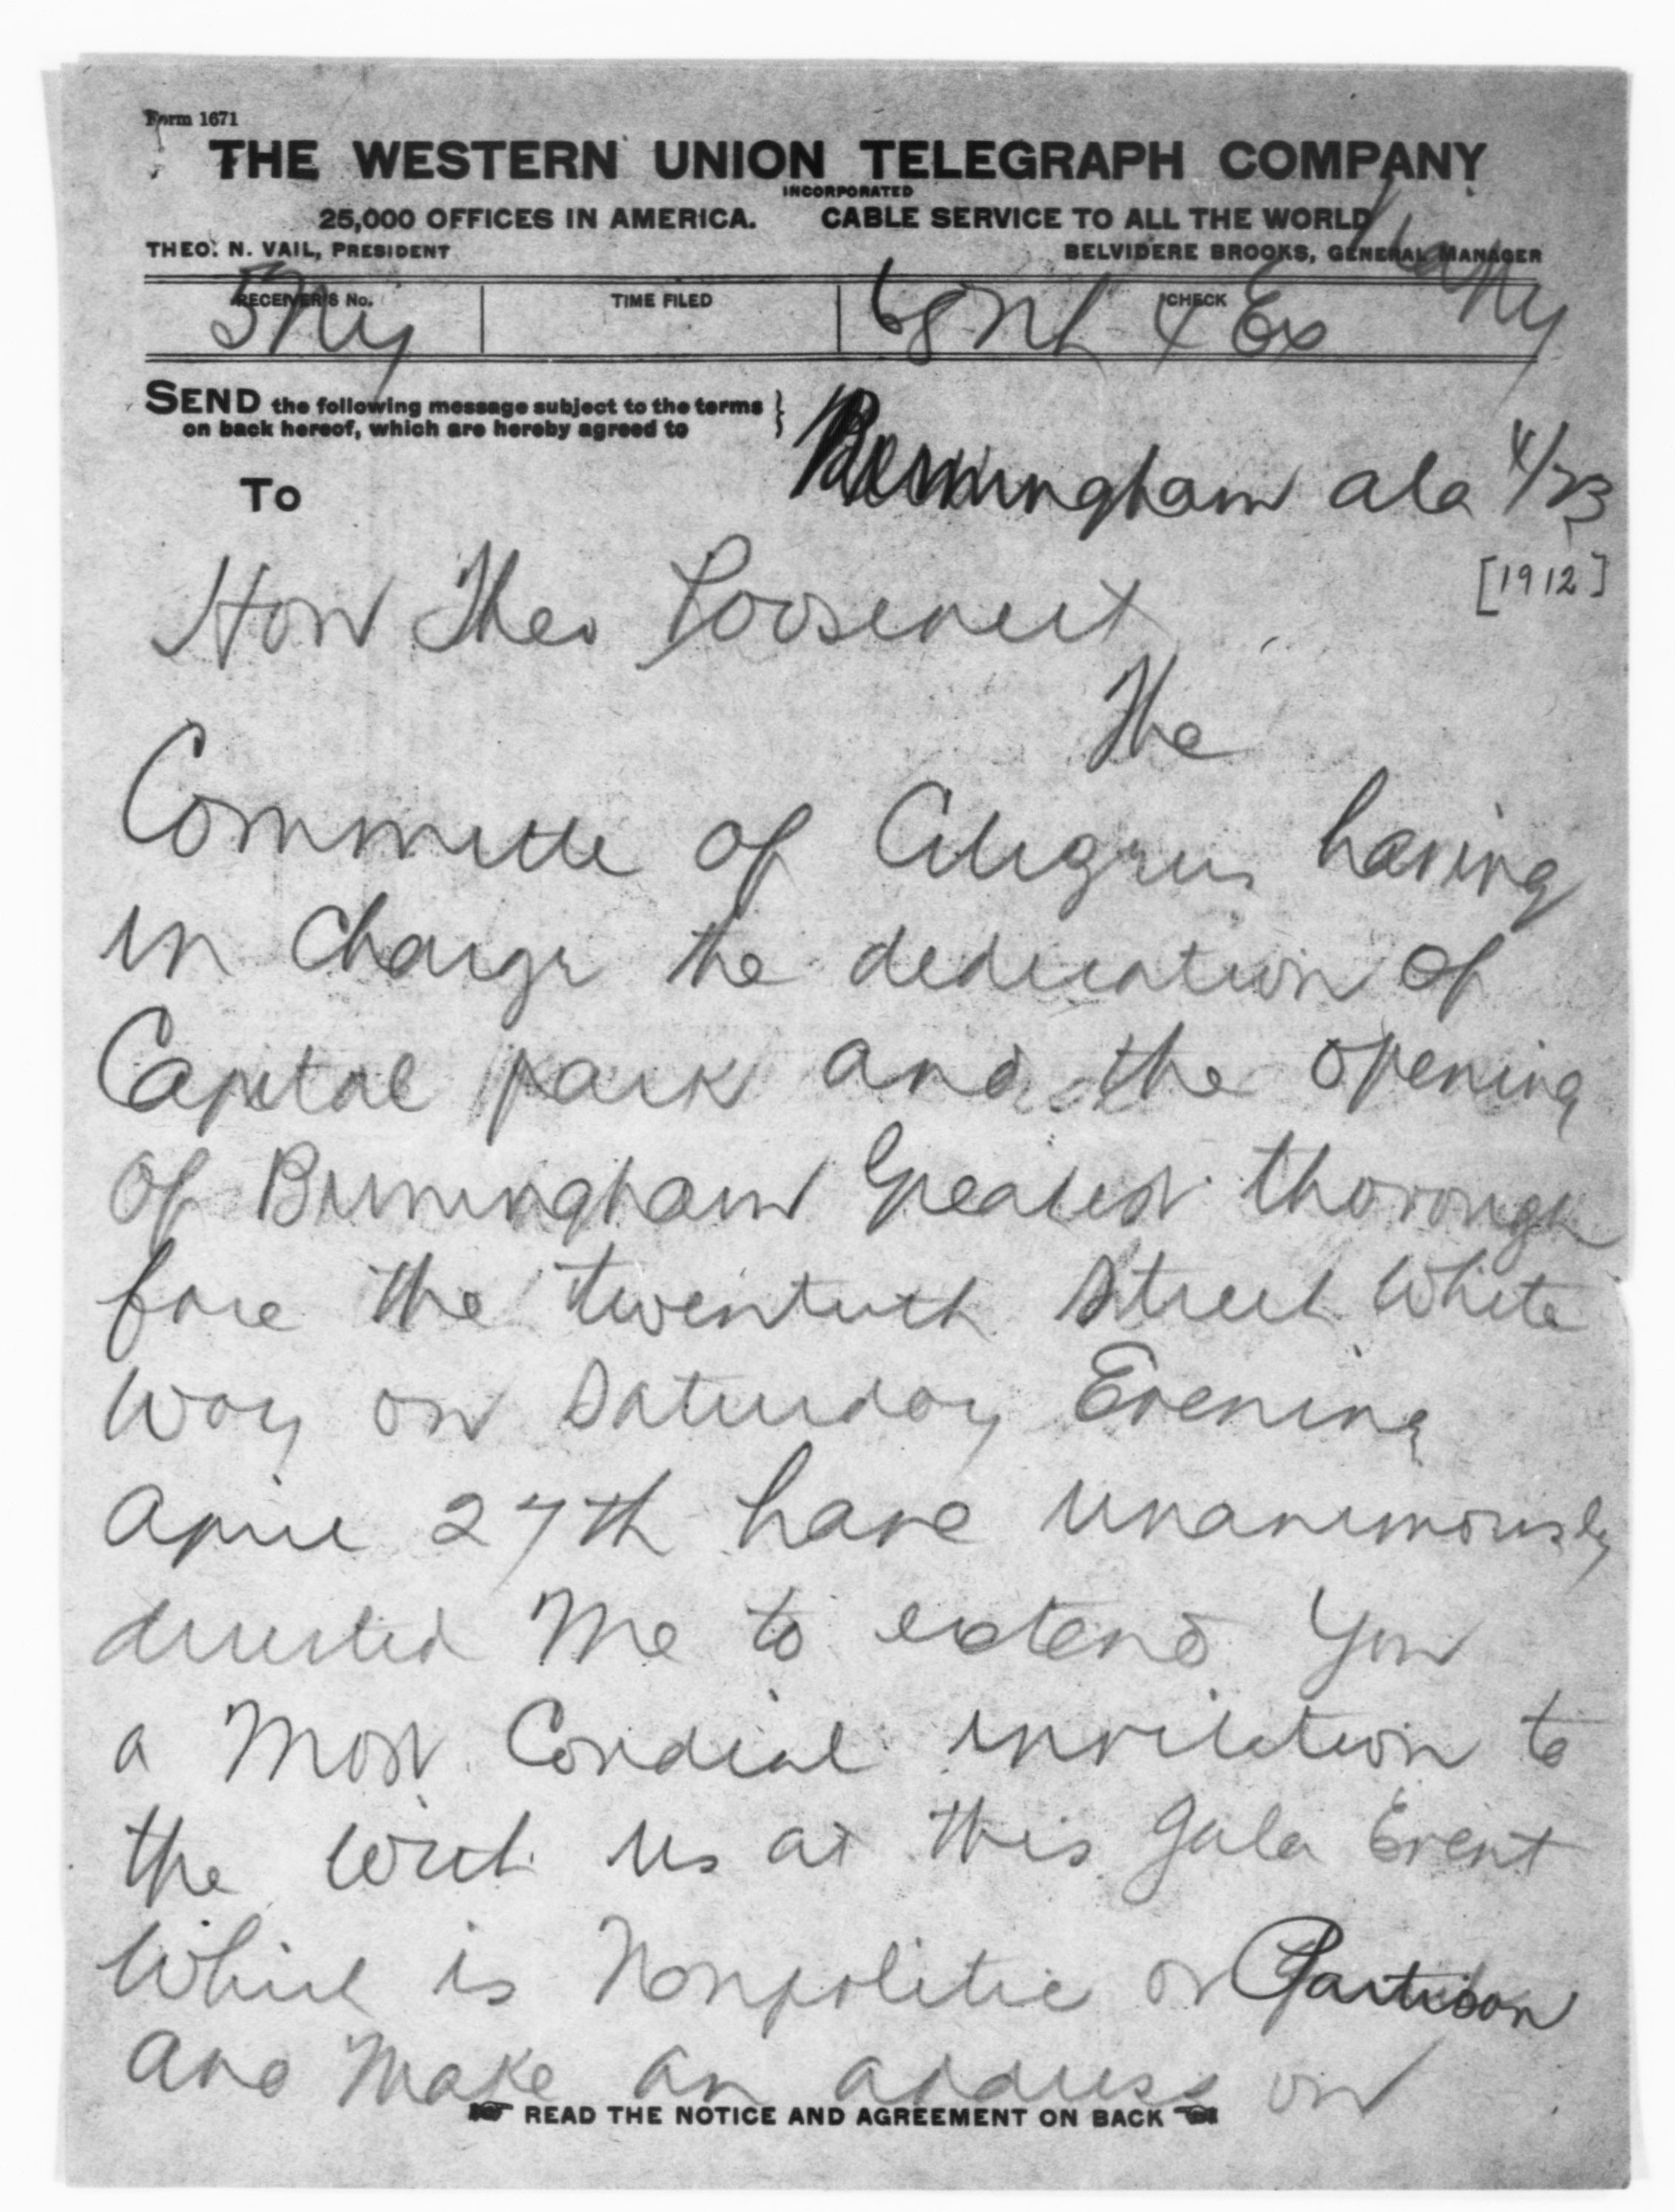 Form 1671
THE WESTERN UNION TELEGRAPH COMPANY
INCORPORATED
25,000 OFFICES IN AMERICA. CABLE SERVICE TO ALL THE WORLD
THEO. N. VAIL, PRESIDENT BELVIDERE BROOKS, GENERAL MANAGER
RECEIVER'S No. TIME FILED CHECK
5 Ny 68 NL 4 Ex Ny
SEND the following message subject to the terms
on back hereof, which are hereby agreed to
Birmingham ala 4/23
To
[1912]
Hon Theo Roosevelt
The
Committe of Citizens having
in Charge the dedication of
Capital park and the opening
of Birmingham Greatest thorough
fare the twentieth Street White
Way on Saturday Evening
April 27th have unanimously
directed Me to extend You
a Most Cordial invitation to
the with us at this gala Event
Which is Nonpolitic or Partison
and Make an address on
READ THE NOTICE AND AGREEMENT ON BACK